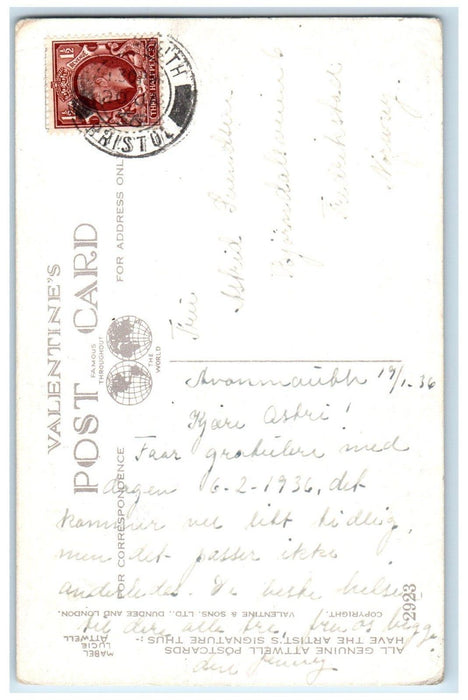 VALENTINE'S
POST CARD
FAMOUS THROUGHOUT
THE WORLD
FOR ADDRESS ONLY
FOR CORRESPONDENCE
1½ 1½
THREE HALFPENCE
BRISTOL
Astrid
Norway
Avonmouth 19/1-36
Kjære Astri!
Faar gratulere med
dagen 6-2-1936, det
kommer vel litt tidlig,
men det passer ikke
anderledes. De beste hilsen
til dere alle tre fra os begge
2923
COPYRIGHT.
VALENTINE & SONS, LTD., DUNDEE AND LONDON.
ALL GENUINE ATTWELL POSTCARDS
HAVE THE ARTIST'S SIGNATURE THUS:
MABEL
LUCIE
ATTWELL